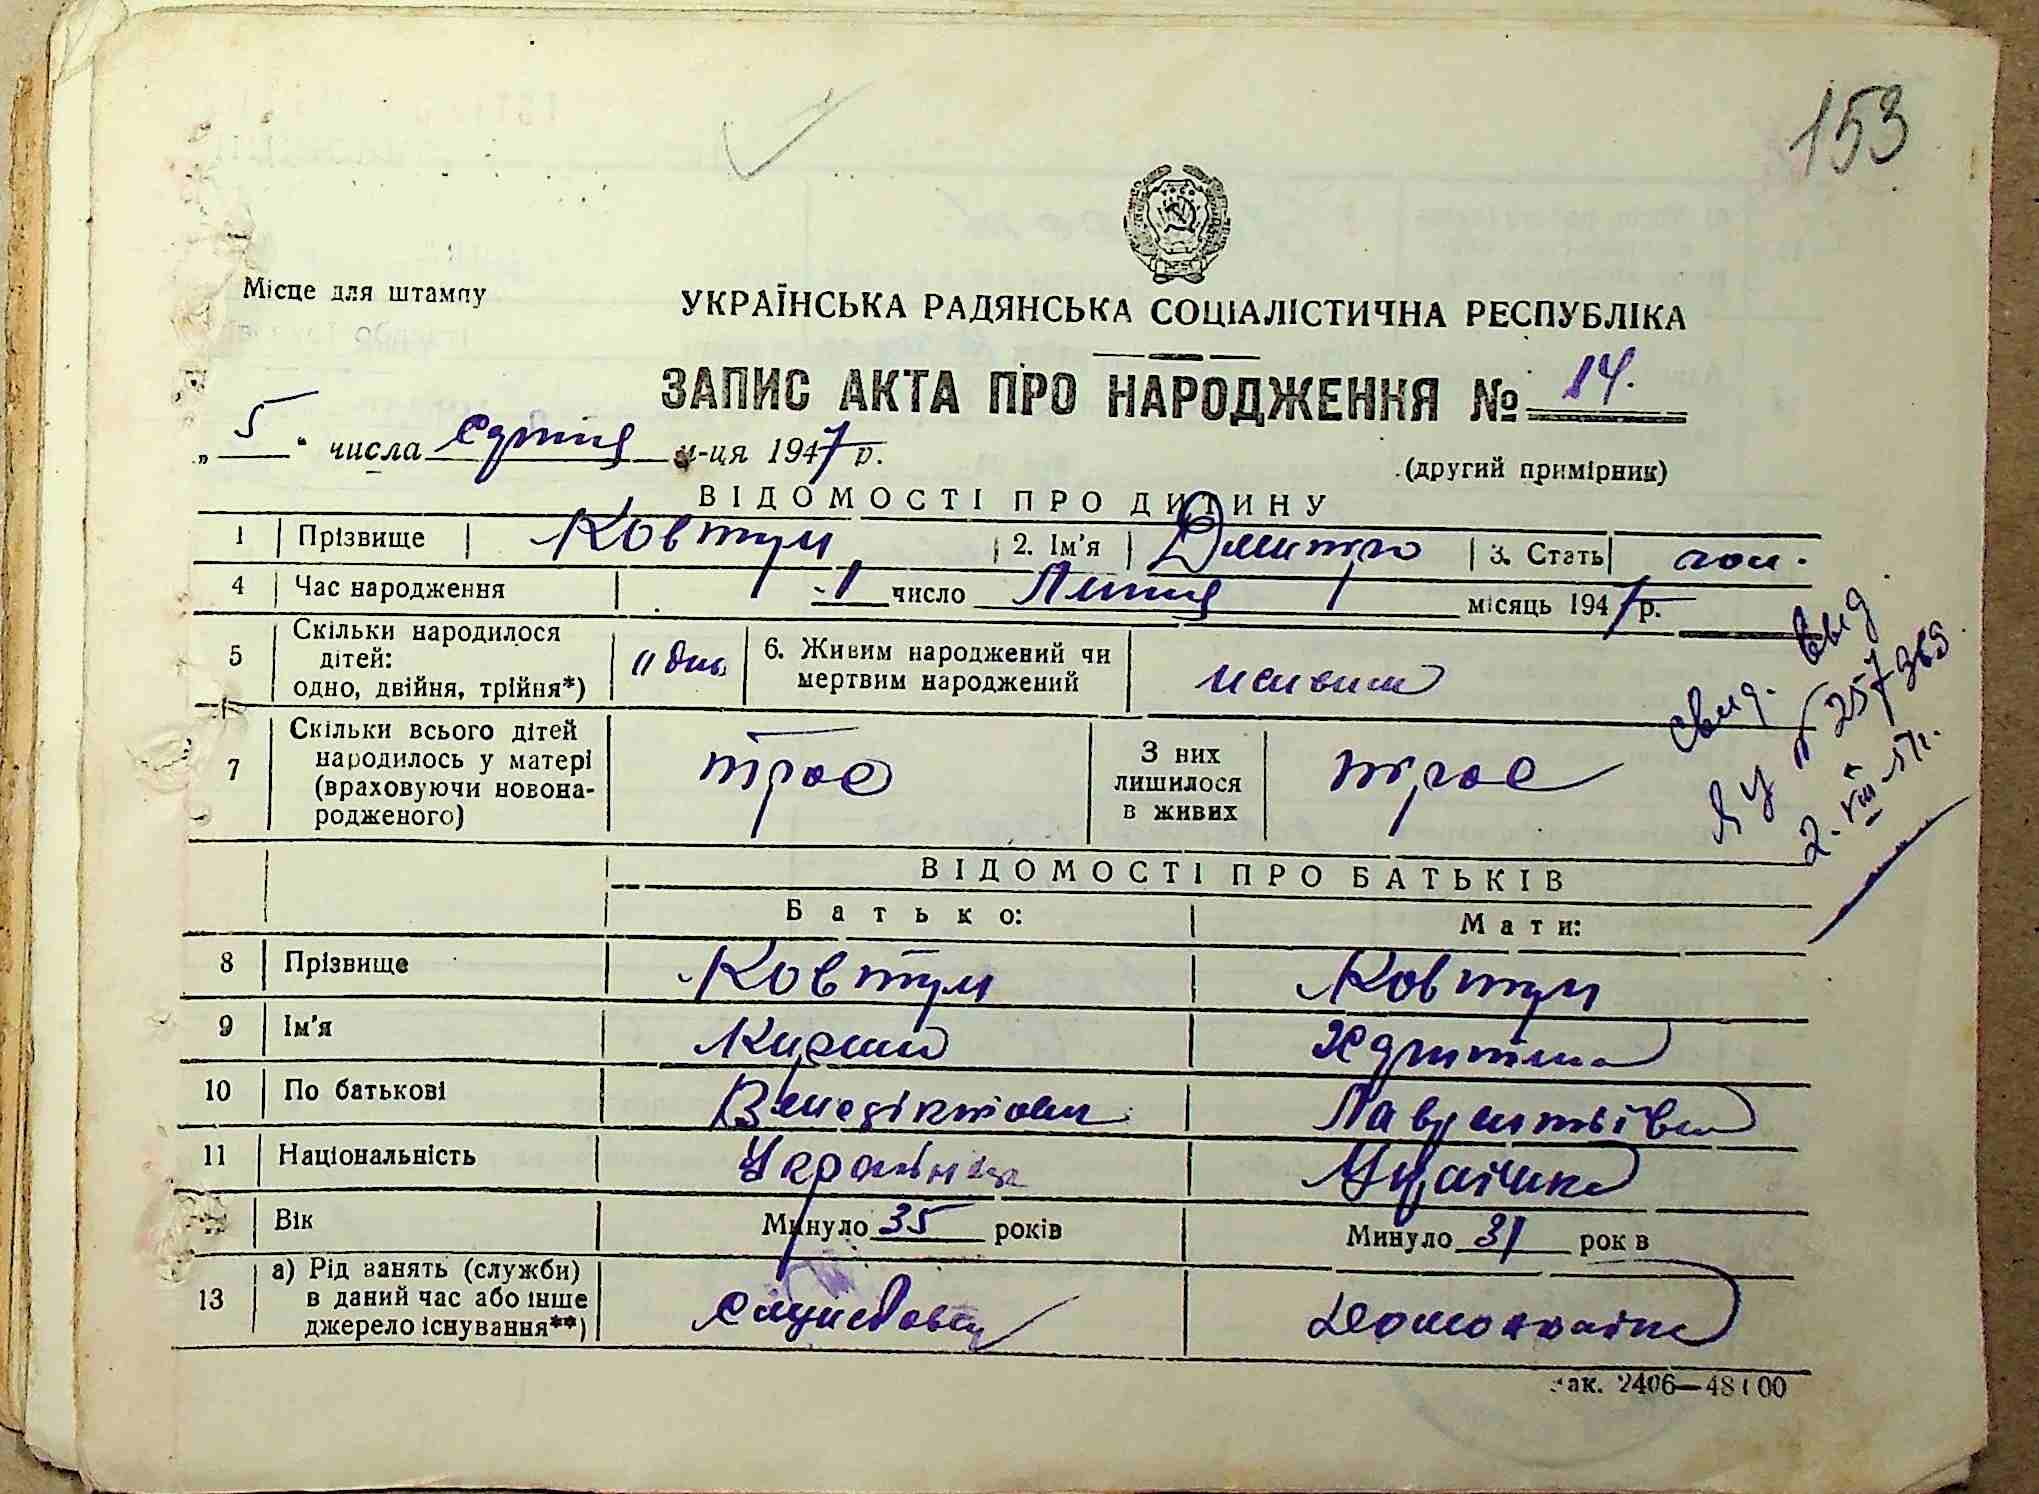 153
Місце для штампу
УКРАЇНСЬКА РАДЯНСЬКА СОЦІАЛІСТИЧНА РЕСПУБЛІКА
ЗАПИС АКТА ПРО НАРОДЖЕННЯ № 14.
„ 5 " числа серпня м-ця 1947 р.
(другий примірник)
ВІДОМОСТІ ПРО ДИТИНУ
1 Прізвище Ковтун 2. Ім'я Дмитро 3. Стать чол.
4 Час народження 1 число Липня місяць 1947 р.
5 Скільки народилося дітей: одно, двійня, трійня*) 6. Живим народжений чи мертвим народжений живим
7 Скільки всього дітей народилось у матері (враховуючи новонародженого) троє З них лишилося в живих троє
свид.
ЯУ № 257369
2.VIII.51г.
ВІДОМОСТІ ПРО БАТЬКІВ
Батько: Мати:
8 Прізвище Ковтун Ковтун
9 Ім'я
10 По батькові Венедіктович Лаврентьївна
11 Національність Українець Українка
Вік Минуло 35 років Минуло 31 рок в
13 а) Рід занять (служби) в даний час або інше джерело існування**) Домохазяйка
зак. 2406—48100